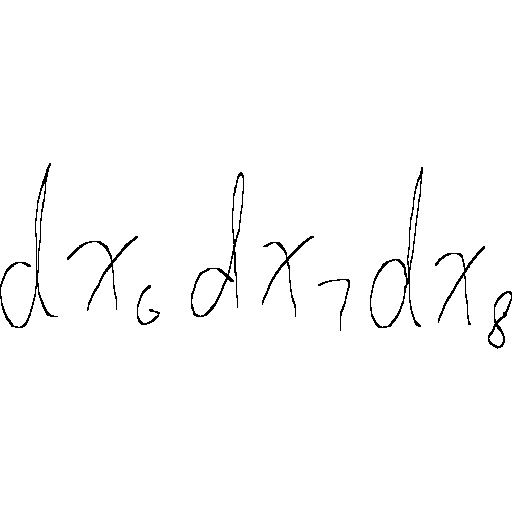 dx₆dx₇dx₈